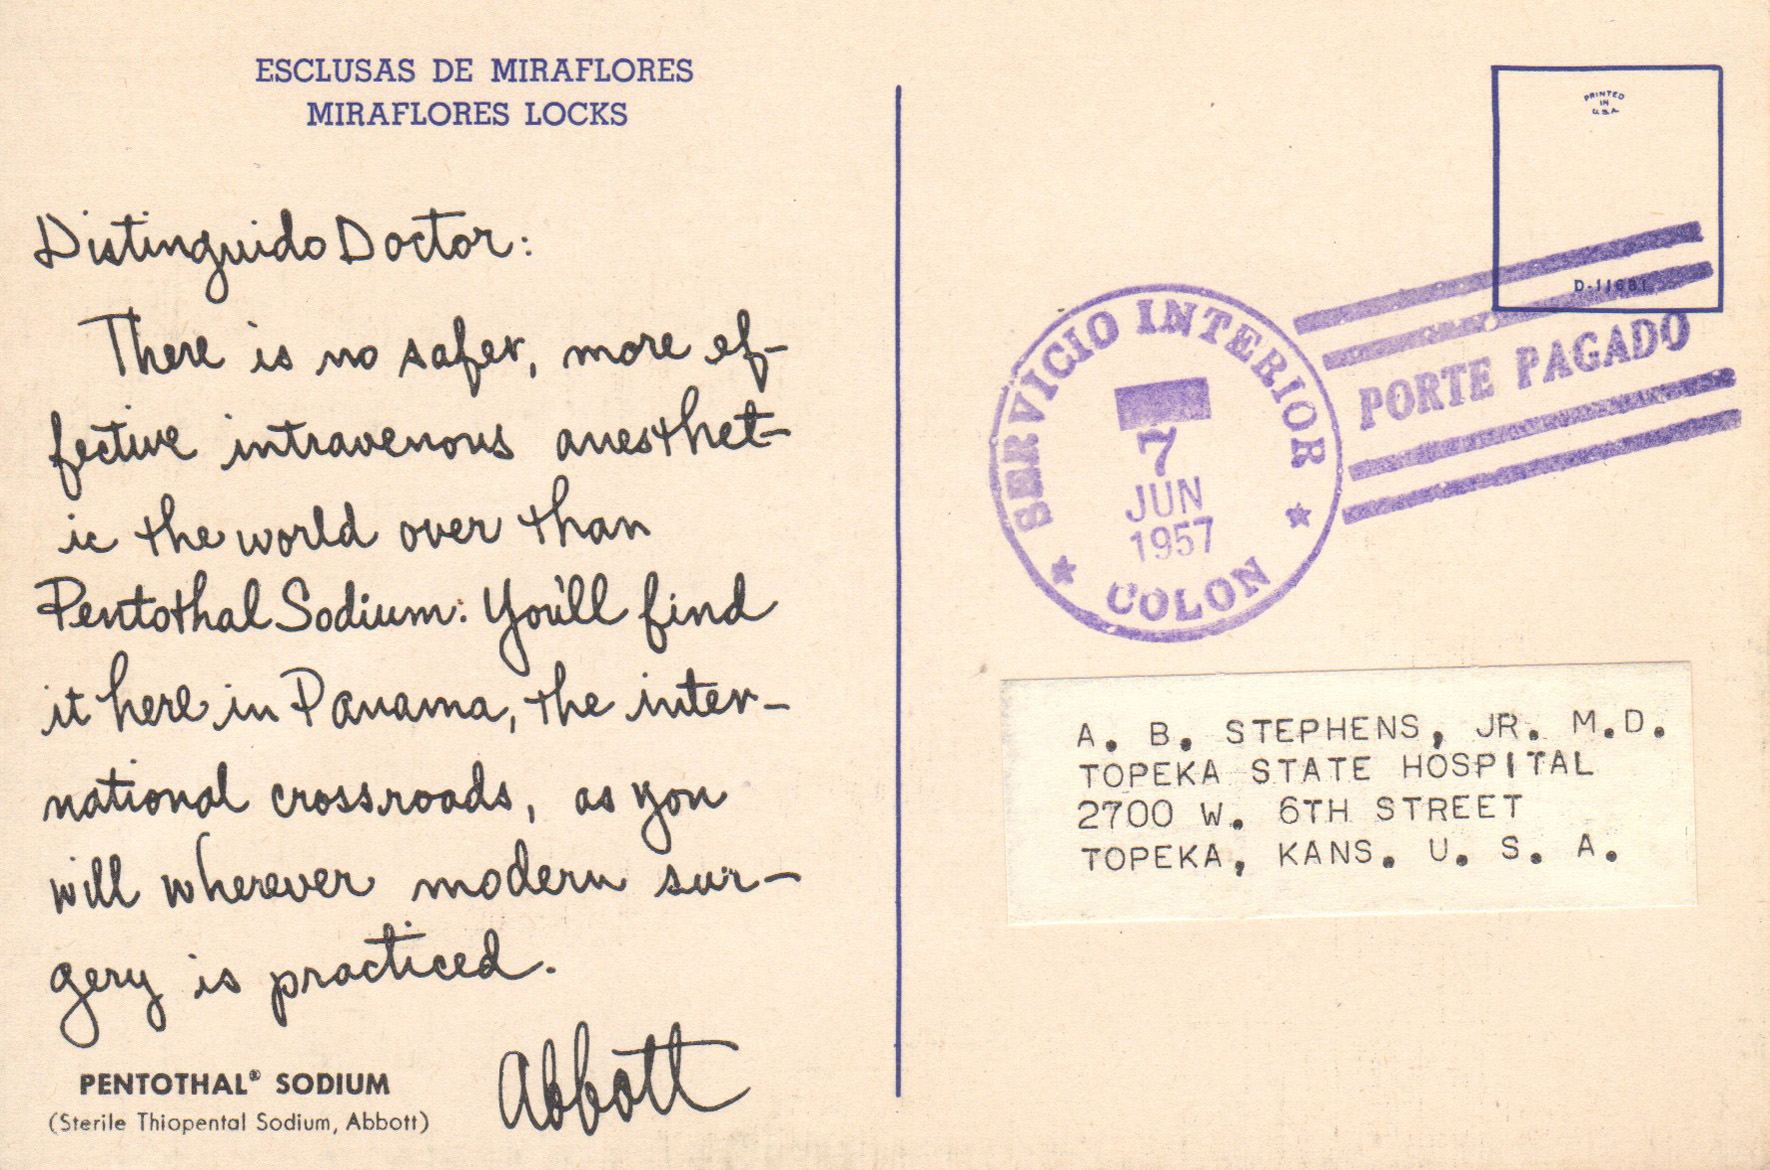 ESCLUSAS DE MIRAFLORES
MIRAFLORES LOCKS
Distinguido Doctor:
There is no safer, more ef-
fective intravenous anesthet-
ic the world over than
Pentothal Sodium: You'll find
it here in Panama, the inter-
national crossroads, as you
will wherever modern sur-
gery is practiced.
Abbott
PENTOTHAL® SODIUM
(Sterile Thiopental Sodium, Abbott)
PRINTED
IN
U.S.A.
D-11681
PORTE PAGADO
SERVICIO INTERIOR
7
JUN
1957
COLON
A. B. STEPHENS, JR. M.D.
TOPEKA STATE HOSPITAL
2700 W. 6TH STREET
TOPEKA, KANS. U. S. A.